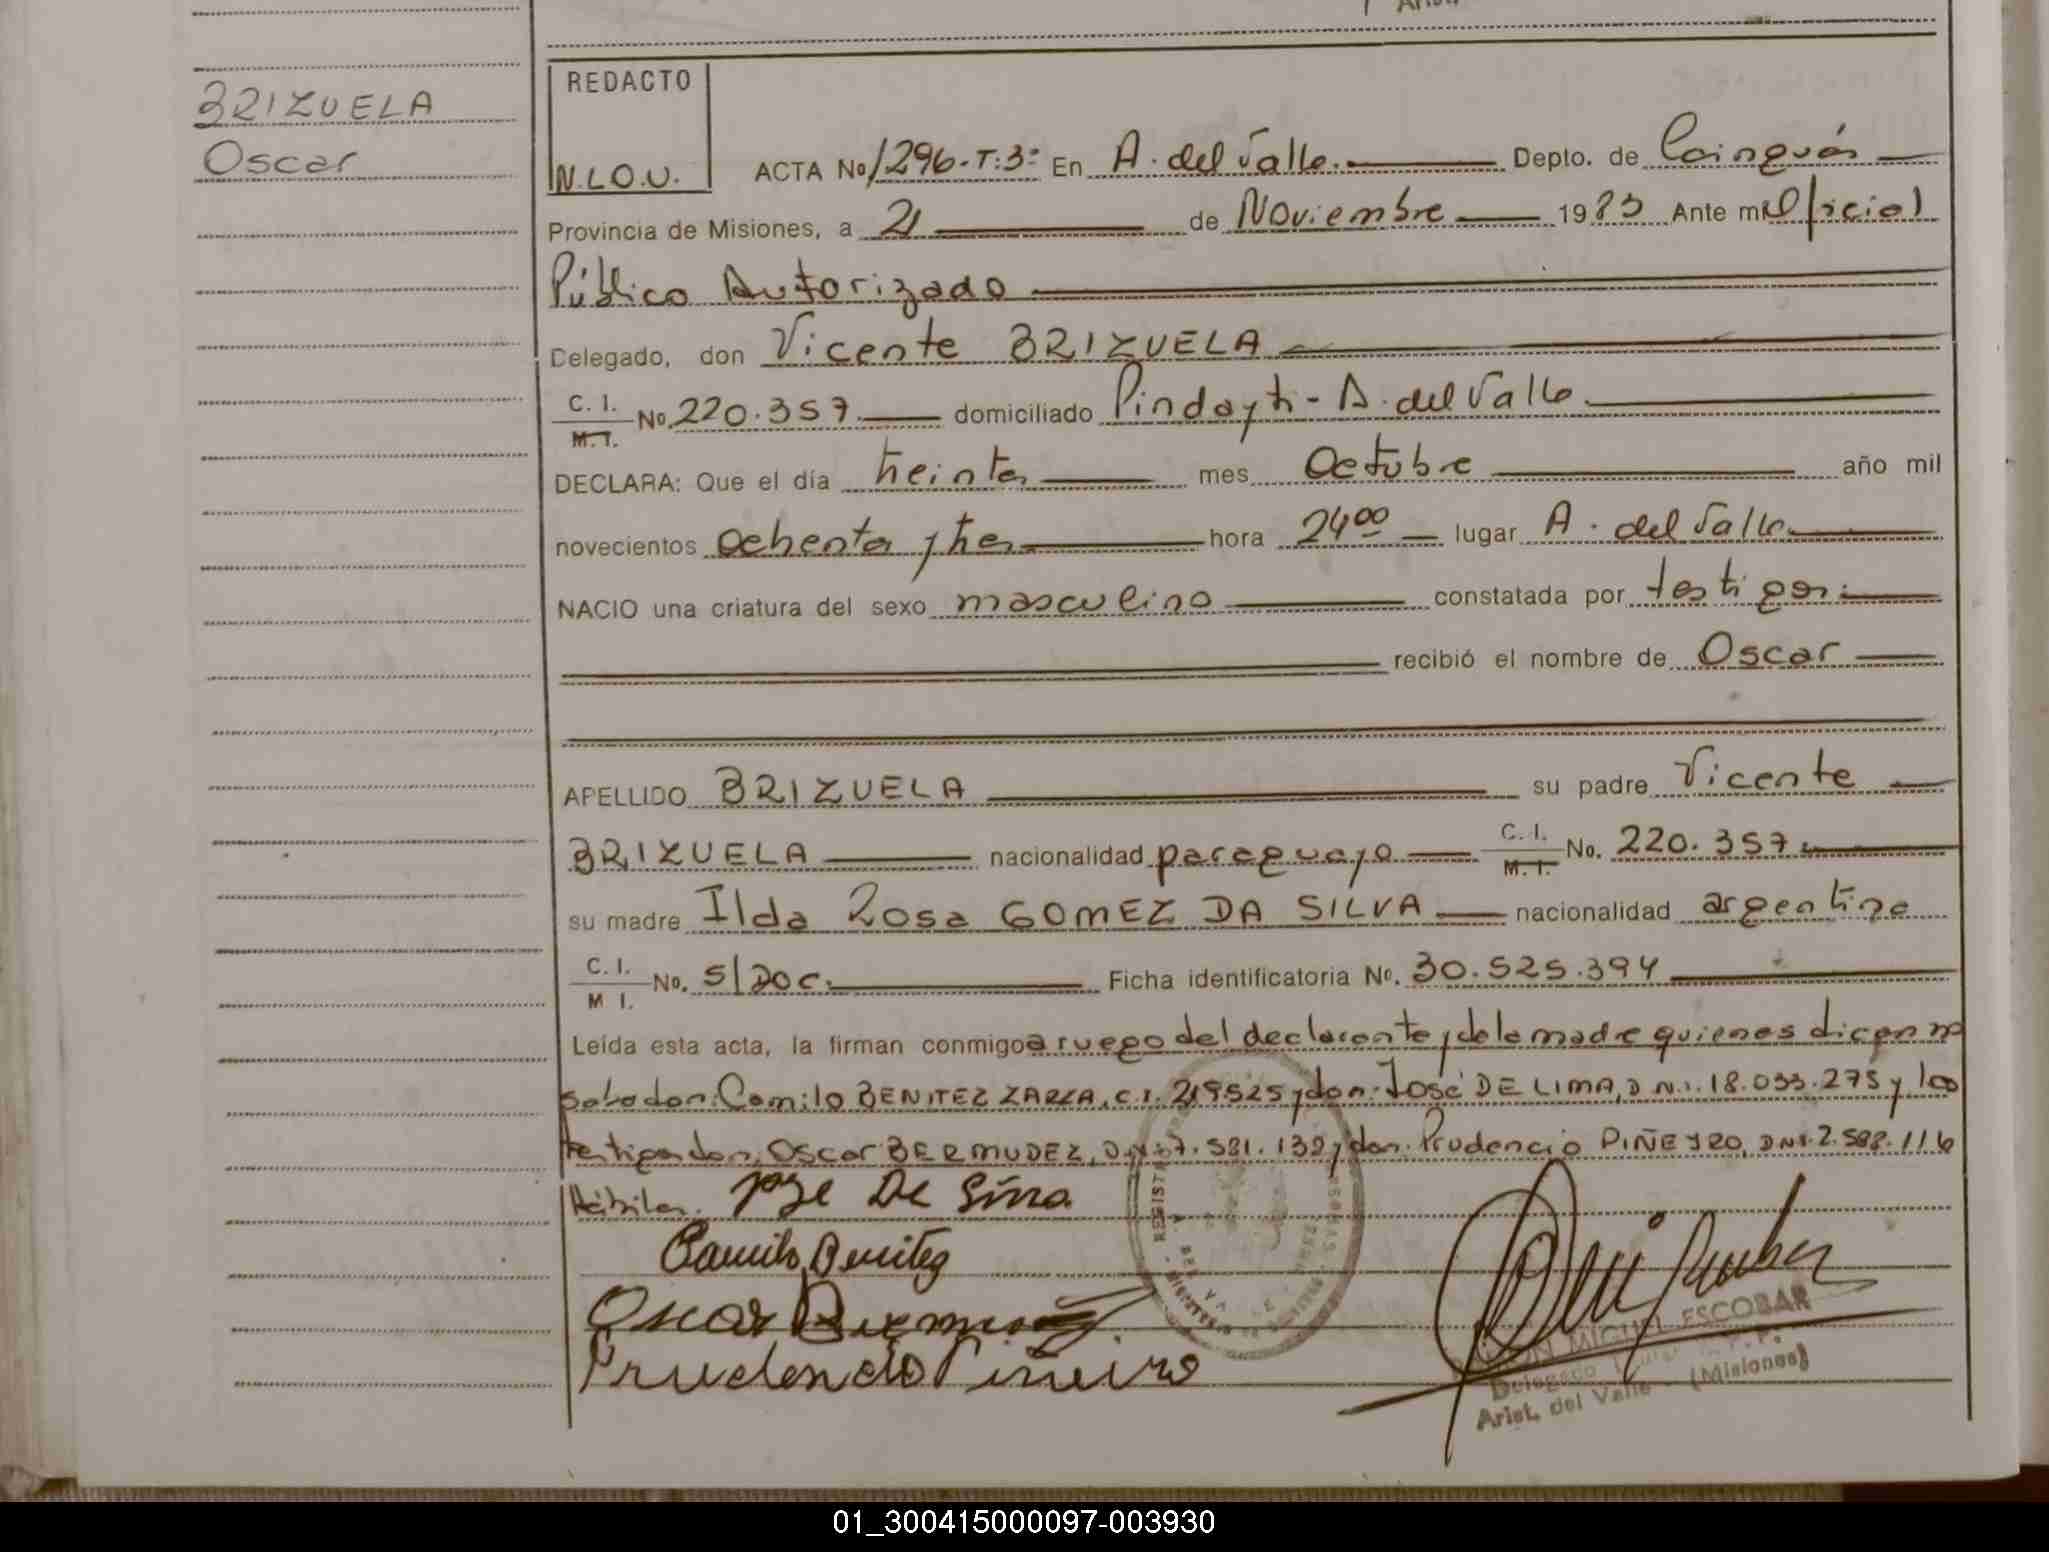 BRIZUELA
Oscar
REDACTO
N.L.O.U.
ACTA No 1296-T:3º En A. del Valle. Depto. de Cainguás
Provincia de Misiones, a 21 de Noviembre 1983 Ante mi Oficial
Público Autorizado
Delegado, don Vicente BRIZUELA
C. I. M. I. No. 220.357 domiciliado Pindayti - A. del Valle.
DECLARA: Que el día treinta mes Octubre año mil
novecientos ochenta y tres hora 2400 lugar A. del Valle
NACIO una criatura del sexo masculino constatada por testigos:
recibió el nombre de Oscar
APELLIDO BRIZUELA su padre Vicente
BRIZUELA nacionalidad paraguayo C. I. M. I. No. 220.357
su madre Ilda Rosa GOMEZ DA SILVA nacionalidad argentina
C. I. M I. No. S/Doc. Ficha identificatoria No. 30.525.394
Leída esta acta, la firman conmigo a ruego del declarante y de la madre quienes dicen no
don: Camilo BENITEZ C.I. 219525 y don: José DE LIMA, D.N.I. 18.033.275 y los
testigos don: Oscar BERMUDEZ, D.N.I. 7.581.139 y don: Prudencio PIÑEYRO, DNI. 2.588.116
Hábiles. José De Lima
Camilo Benitez
Oscar
Prudencio Piñeiro
REGISTRO
MIGUEL ESCOBAR
Delegado
Arist. del Valle - (Misiones)
01_300415000097-003930